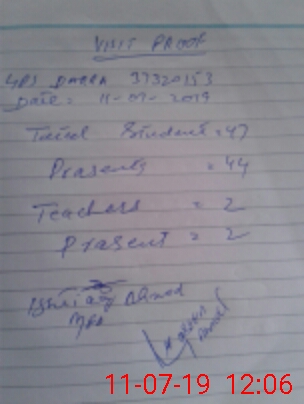 VISIT PROOF
GPS DAGRA 37320153
Date = 11-07-2019
Total Student = 47
Prasents = 44
Teachers = 2
Prasent = 2
Ishtiaq Ahmed
11-07-19 12:06